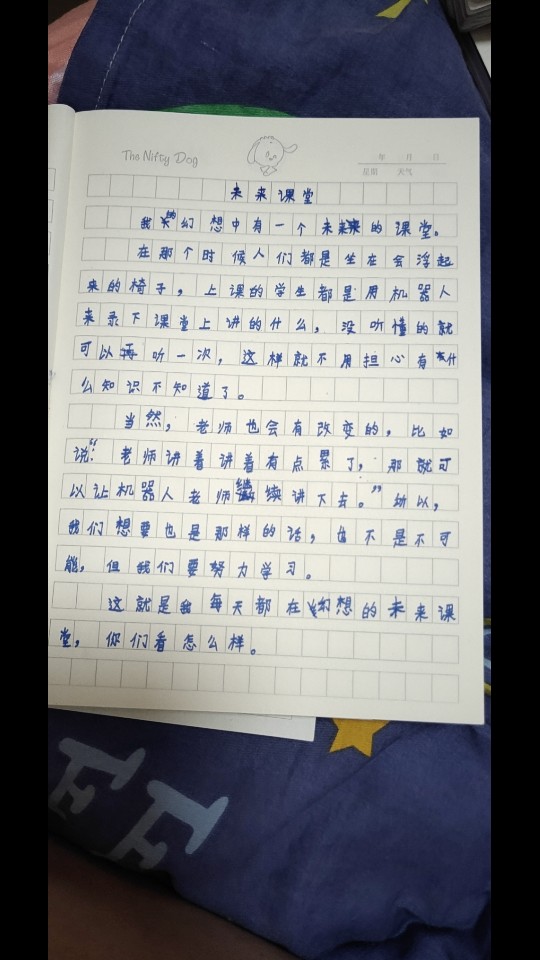 The Nifty Dog
年 月 日
星期 天气
未来课堂
我的幻想中有一个未来的课堂。
在那个时候人们都是坐在会浮起
来的椅子，上课的学生都是用机器人
来录下课堂上讲的什么，没听懂的就
可以再听一次，这样就不用担心有什
么知识不知道了。
当然，老师也会有改变的，比如
说：“老师讲着讲着有点累了，那就可
以让机器人老师继续讲下去。”所以，
我们想要也是那样的话，也不是不可
能，但我们要努力学习。
这就是我每天都在幻想的未来课
堂，你们看怎么样。